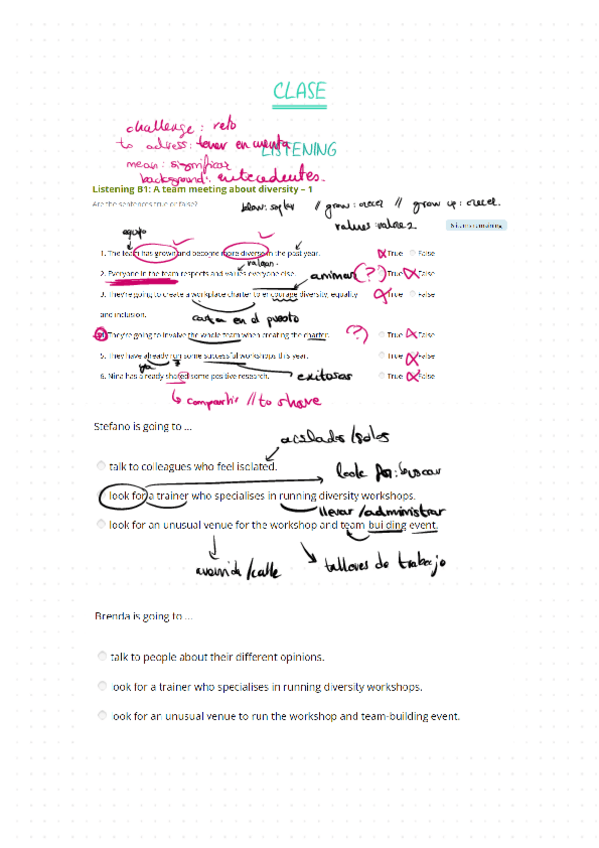 CLASE
challenge: reto
to adress: tener en cuenta
LISTENING
mean: significar
background: antecedentes.
Listening B1: A team meeting about diversity – 1
Are the sentences true or false?
blow: soplar // grow: crecer // grow up: crecer.
values: valores
equipo
1. The team has grown and become more diverse in the past year. True False
valoran
2. Everyone in the team respects and values everyone else. animar (?) True False
3. They're going to create a workplace charter to encourage diversity, equality True False
and inclusion.
carta en el puesto
4. They're going to involve the whole team when creating the charter. (?) True False
5. They have already run some successful workshops this year. True False
ya
6. Nina has already shared some positive research. exitosos True False
compartir // to share
Stefano is going to ...
aislados / solos
talk to colleagues who feel isolated.
look for: buscar
look for a trainer who specialises in running diversity workshops.
llevar / administrar
look for an unusual venue for the workshop and team building event.
avenida / calle
talleres de trabajo
Brenda is going to ...
talk to people about their different opinions.
look for a trainer who specialises in running diversity workshops.
look for an unusual venue to run the workshop and team-building event.